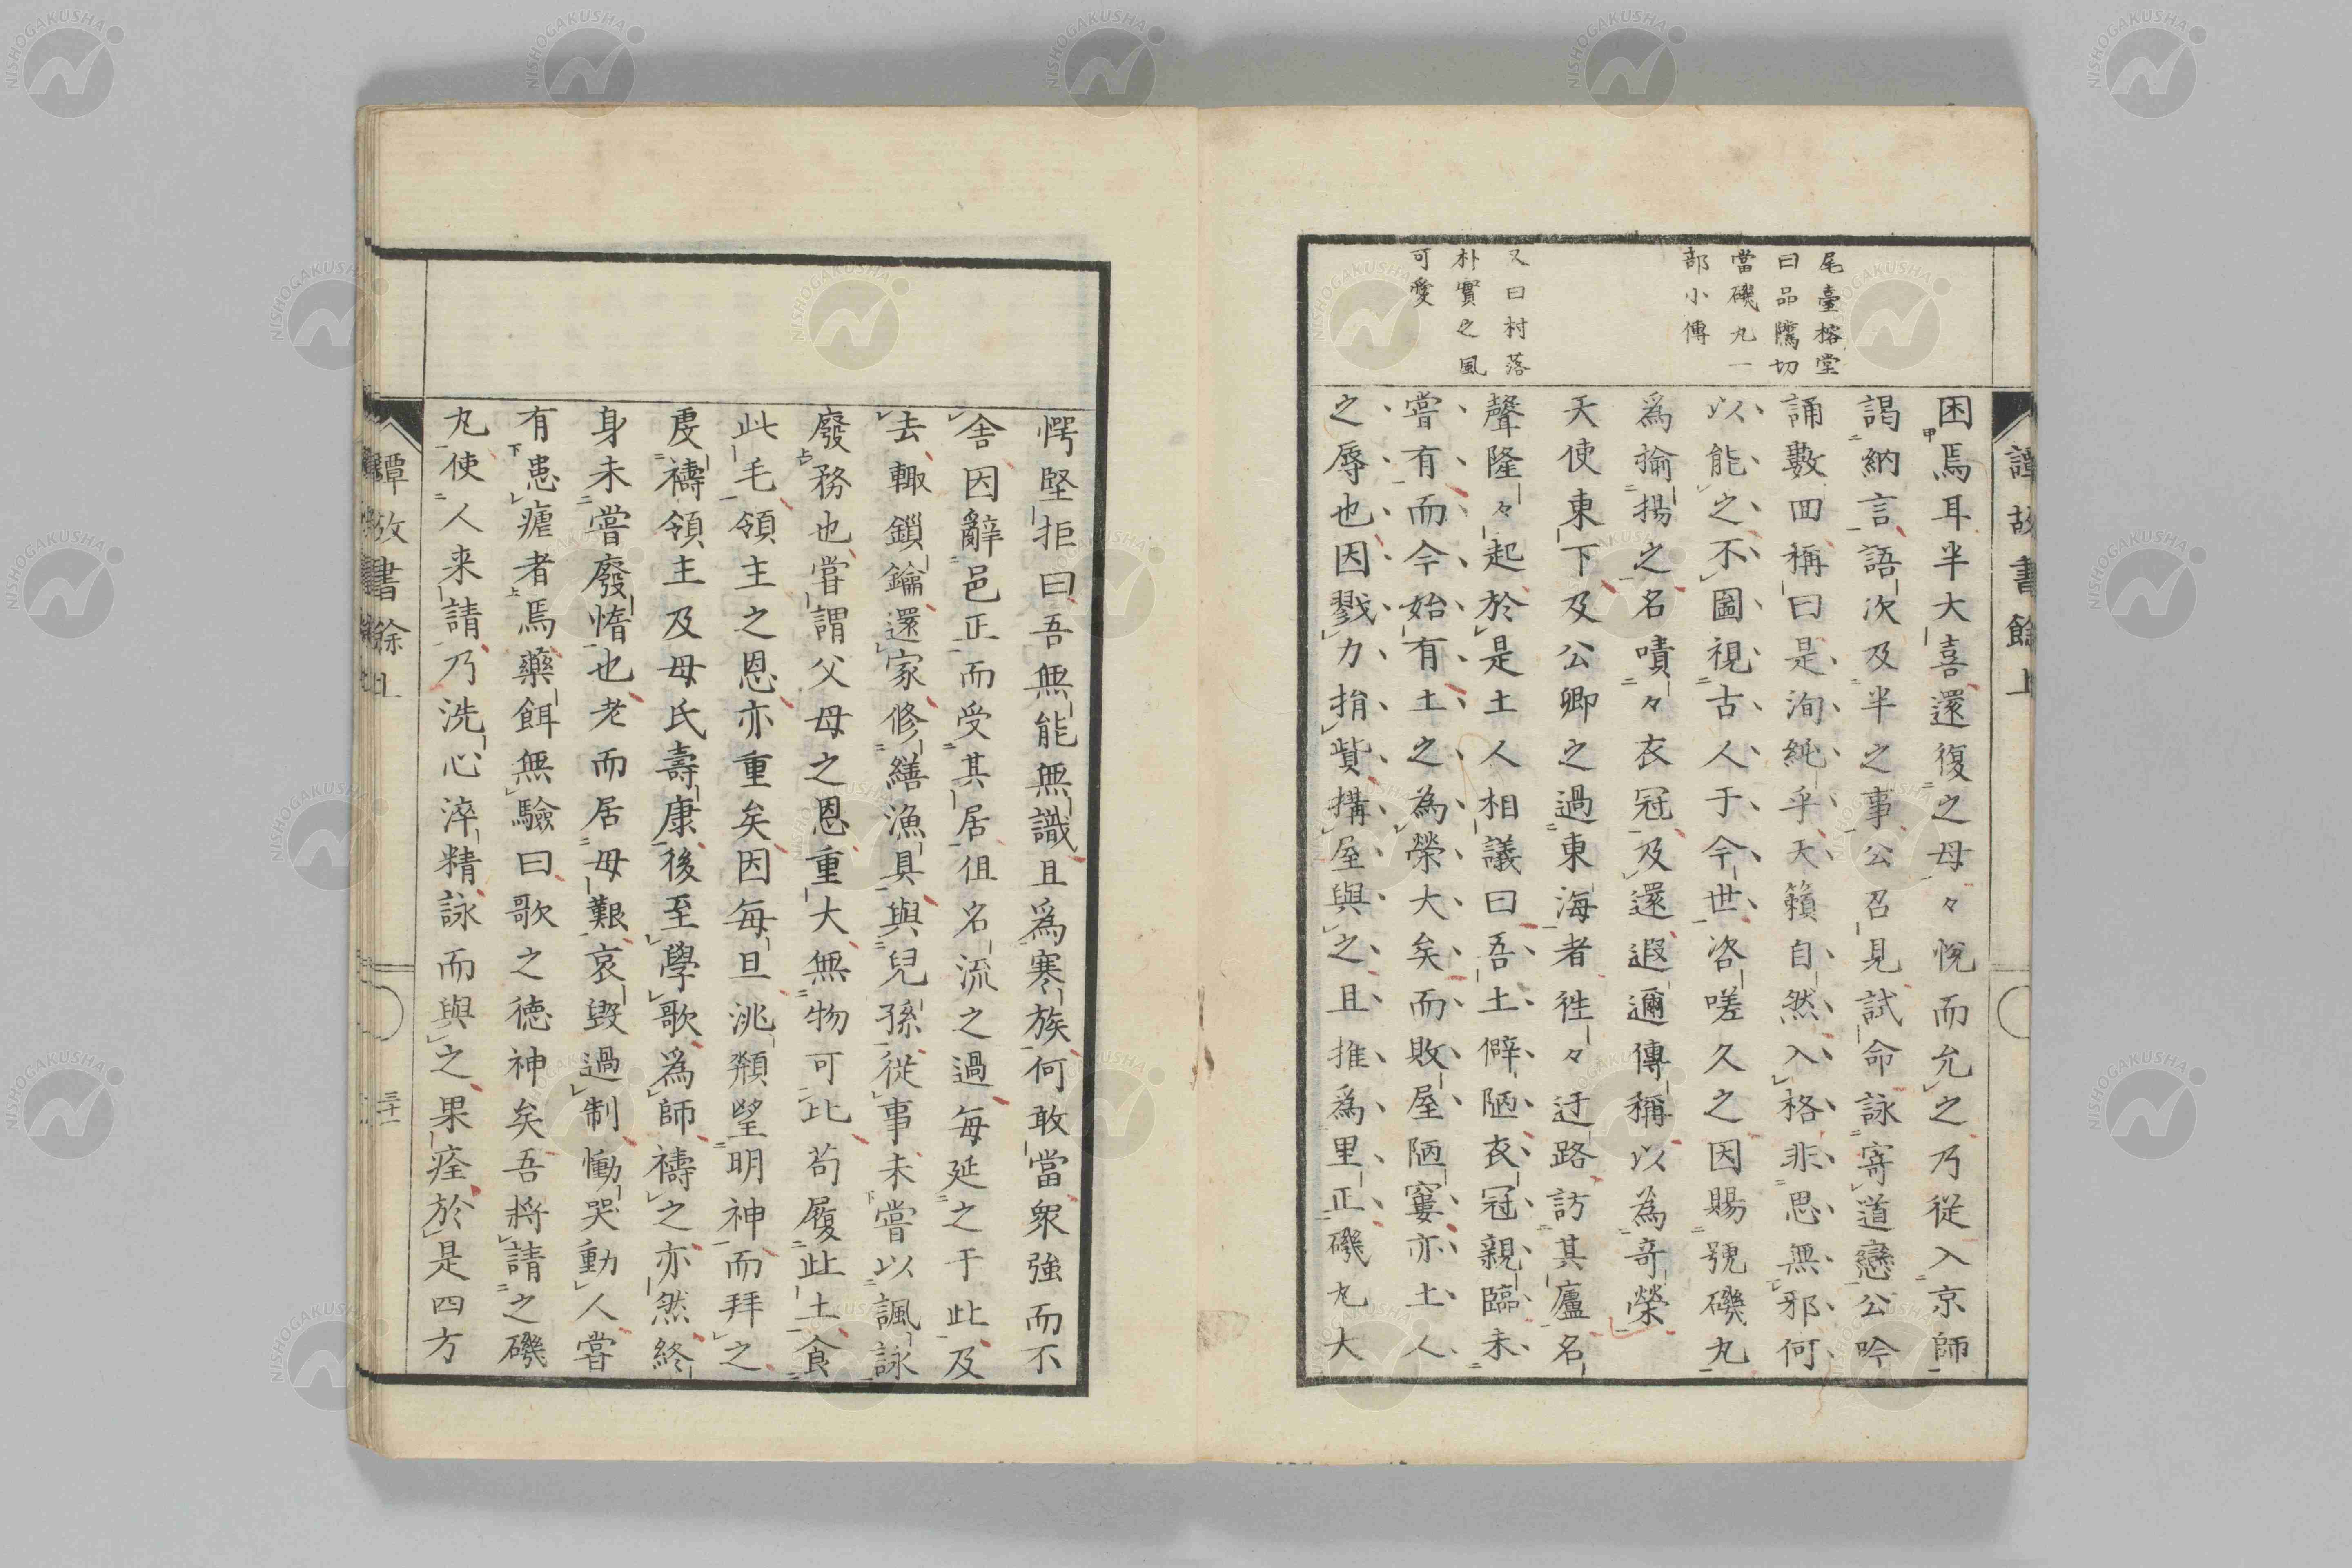 尾臺榕堂
曰品隲切
當磯丸一
部小傳
又曰村落
朴實之風
可愛
困焉耳半大喜還復之母々悅而允之乃從入京師
謁納言語次及半之事公召見試命詠寄道戀公吟
誦數回稱曰是洵純乎天籟自然入格非思無邪何
以能之不圖視古人于今世咨嗟久之因賜號磯丸
爲揄揚之名嘖々衣冠及還遐邇傳稱以為奇榮
天使東下及公卿之過東海者徃々迂路訪其廬名
聲隆々起於是土人相議曰吾土僻陋衣冠親臨未
嘗有而今始有土之為榮大矣而敗屋陋窶亦土人
之辱也因戮力捐貲搆屋與之且推爲里正磯丸大
愕堅拒曰吾無能無識且爲寒族何敢當衆強而不
舍因辭邑正而受其居但名流之過每延之于此及
去輙鎖鑰還家修繕漁具與兒孫從事未嘗以諷詠
廢務也嘗謂父母之恩重大無物可比苟履此土食
此毛領主之恩亦重矣因每旦洮頮望明神而拜之
虔禱領主及母氏壽康後至學歌爲師禱之亦然終
身未嘗廢惰也老而居母艱哀毀過制慟哭動人嘗
有患瘧者焉藥餌無驗曰歌之徳神矣吾將請之磯
丸使人来請乃洗心淬精詠而與之果痊於是四方
譚故書餘上
三十一
NISHOGAKUSHA